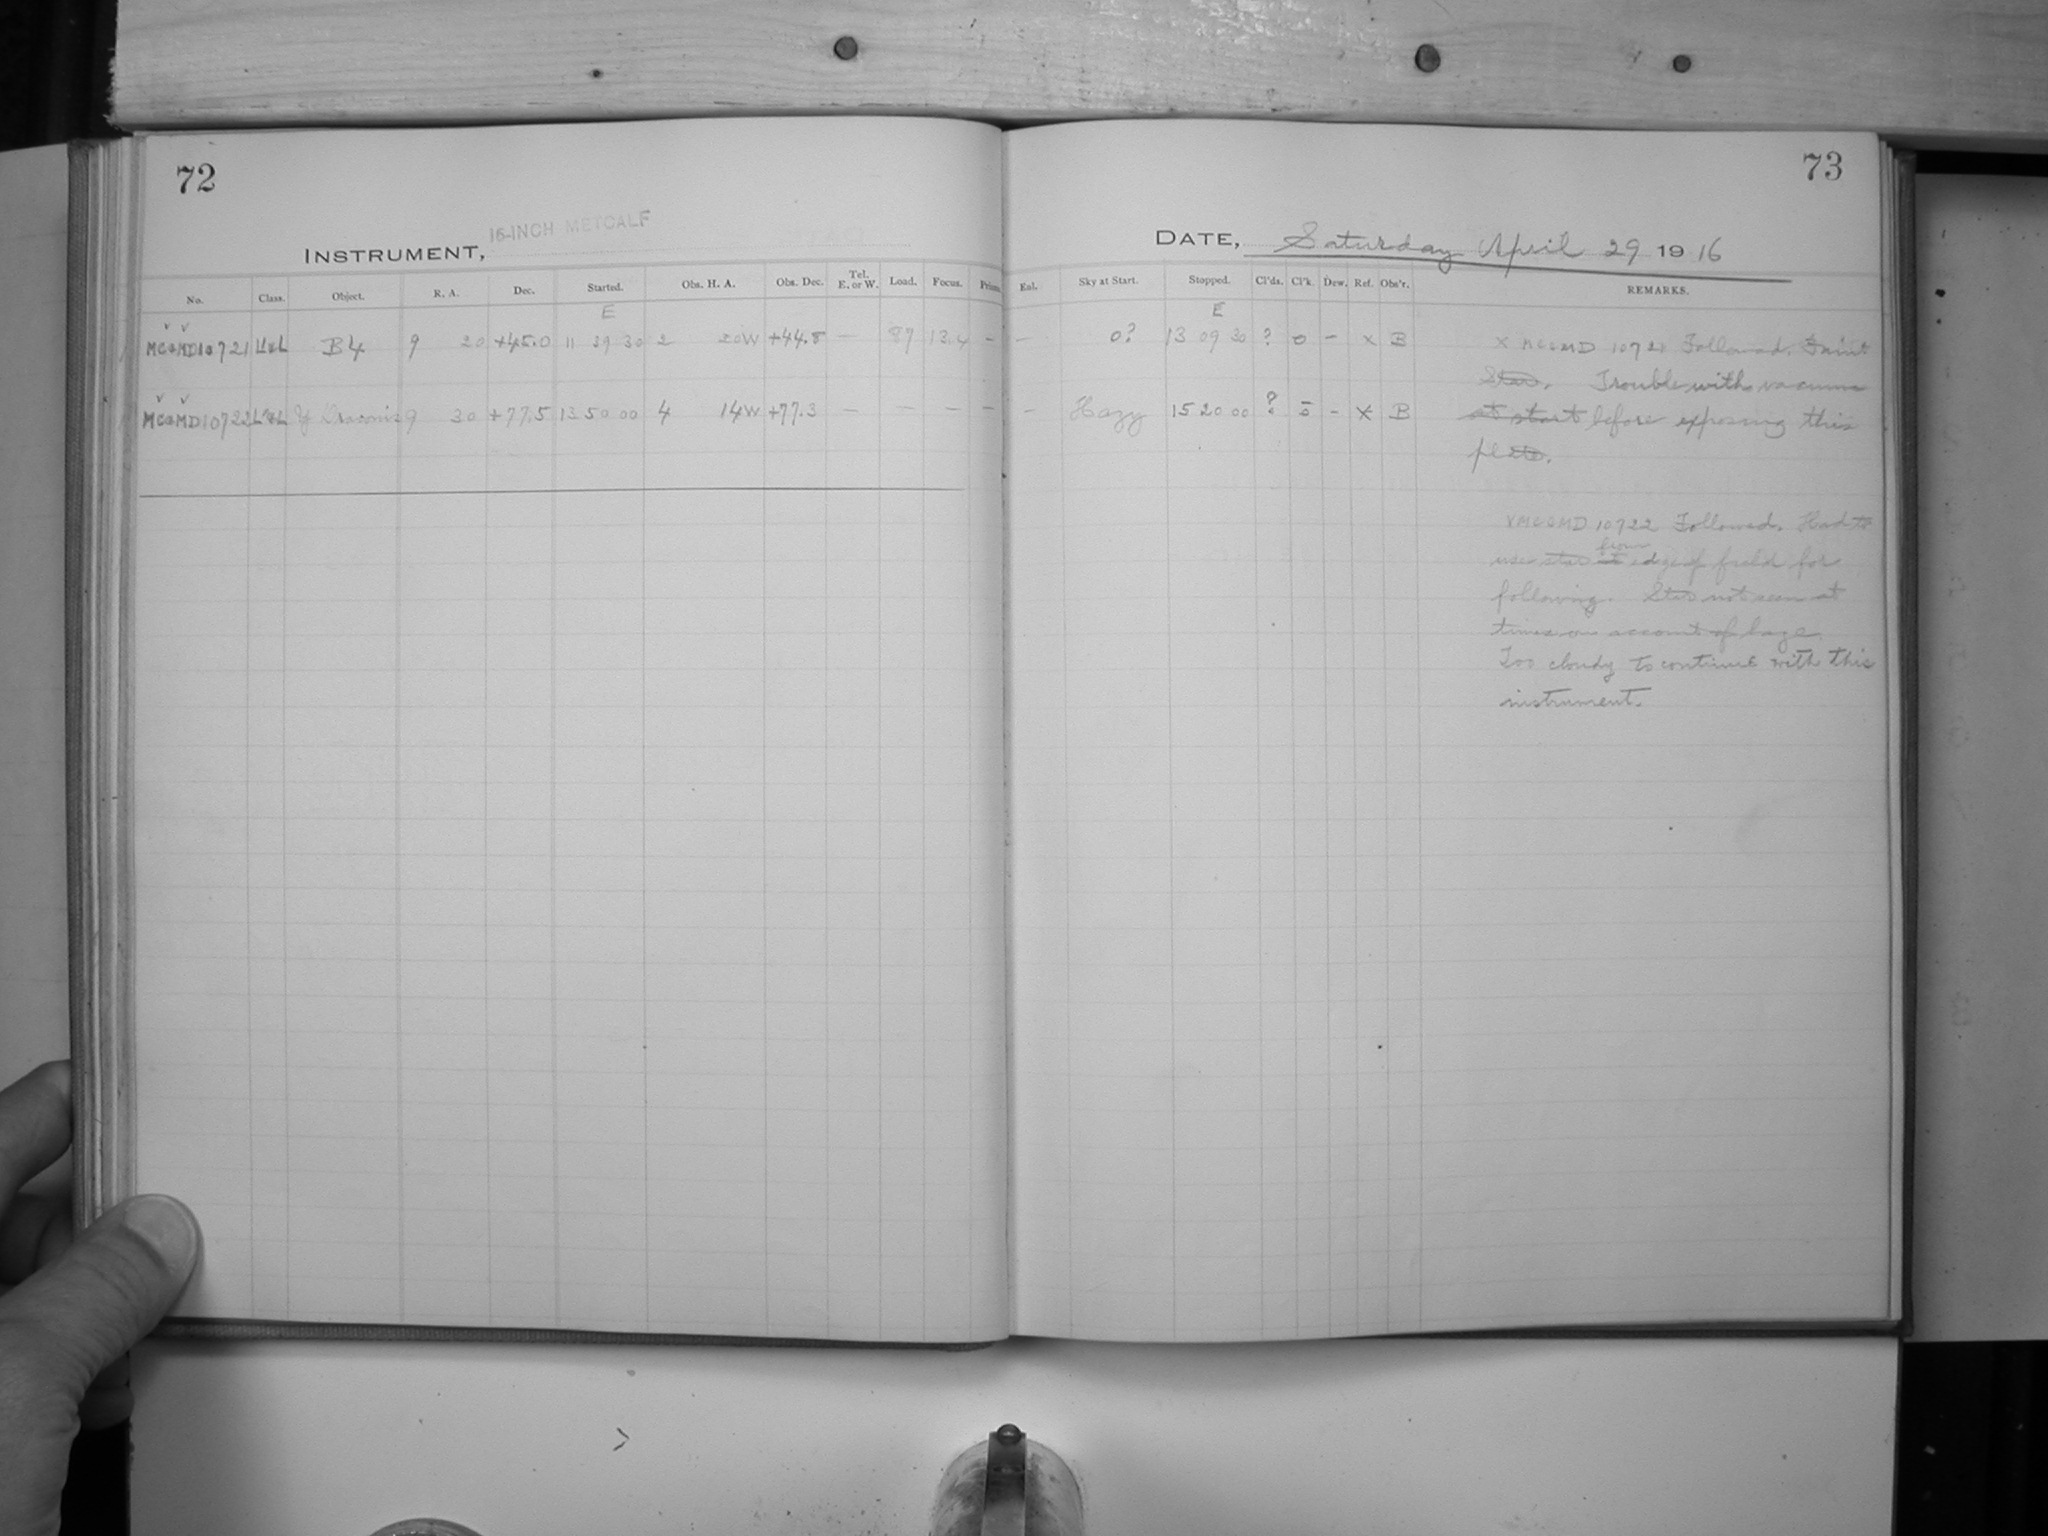 72
16-INCH METCALF
INSTRUMENT,
No. Class. Object. R. A. Dec. Started. Obs. H. A. Obs. Dec. Tel. E. or W. Load. Focus. Prism.
E
10721 B4 9 20 +45.0 11 39 30 2 20W +44.8 — 87 13.4 –
10722 Draconis 9 30 +77.5 13 50 00 4 14W +77.3 — — — –
73
DATE, Saturday April 29 1916
Eal. Sky at Start. Stopped. Cl'ds. Cl'k. Dew. Ref. Obs'r. REMARKS.
E
– 0? 13 09 30 ? 0 – x B
– Hazy 15 20 00 ? – x B
x 10721 Followed. Faint
Star. Trouble with vacuum
at start before exposing this
plate.
10722 Followed. Had to
use star at from edge of field for
following. Star not seen at
times on account of haze.
Too cloudy to continue with this
instrument.